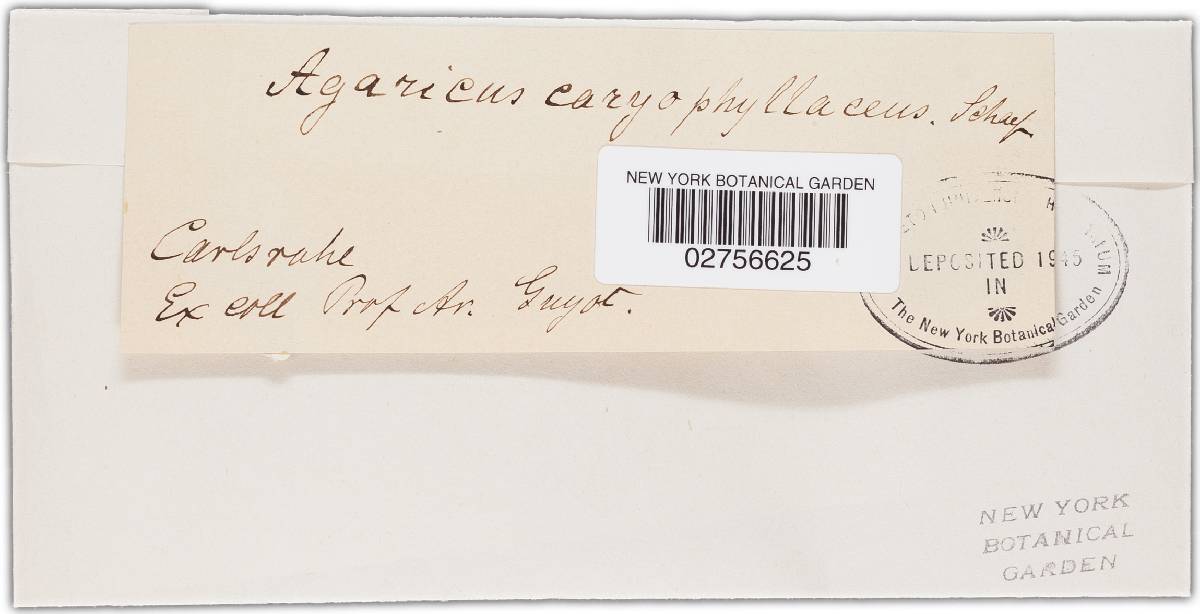 Agaricus caryophyllaceus. Schaef
NEW YORK BOTANICAL GARDEN
02756625
Carlsruhe
Ex coll Prof Ar. Guyot.
DEPOSITED 1945
IN
The New York Botanical Garden
NEW YORK
BOTANICAL
GARDEN